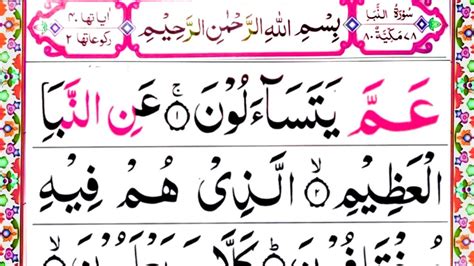 سُوْرَةُ النَّبَا
٧٨ مَكِّيَّةٌ ٨٠
بِسْمِ اللهِ الرَّحْمٰنِ الرَّحِيْمِ
اٰيَاتُهَا ٤٠
رُكُوْعَاتُهَا ٢
عَمَّ يَتَسَآءَلُوْنَ ۚ ١ عَنِ النَّبَاِ
الْعَظِيْمِ ۙ ٢ الَّذِيْ هُمْ فِيْهِ
مُخْتَلِفُوْنَ ؕ كَلَّا سَيَعْلَمُوْنَ ۙ